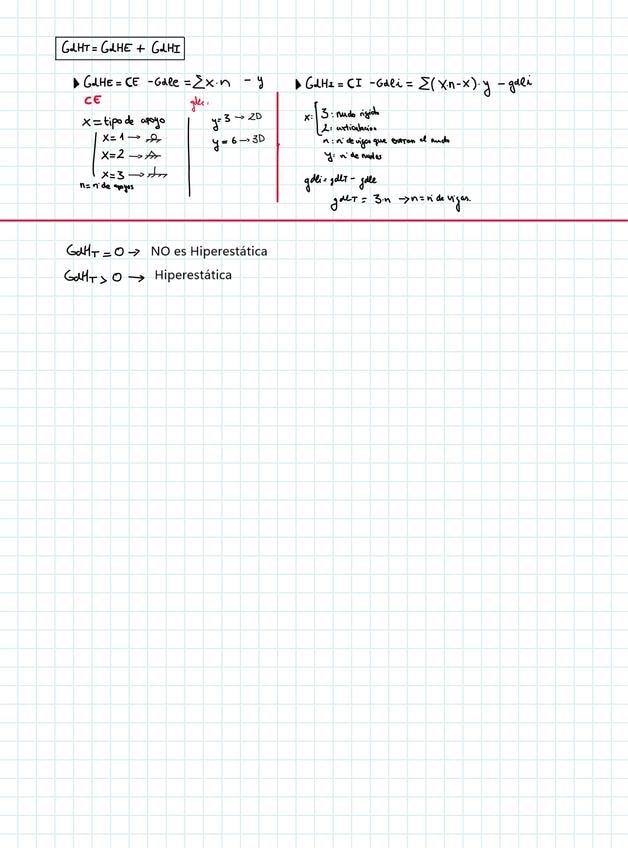 GdHT = GdHE + GdHI
▶ GdHE = CE - Gdle = ∑x·n - y
CE
gdle.
x = tipo de apoyo
x = 1 →
x = 2 →
x = 3 →
n = nº de apoyos
y = 3 → 2D
y = 6 → 3D
▶ GdHI = CI - Gdli = ∑(x·n-x)·y - gdli
x: 3: nudo rígido
2: articulación
n: nº de vigas que entran al nudo
y: nº de nudos
gdli = gdlT - gdle
gdlT = 3·n → n = nº de vigas.
GdHT = 0 → NO es Hiperestática
GdHT > 0 → Hiperestática